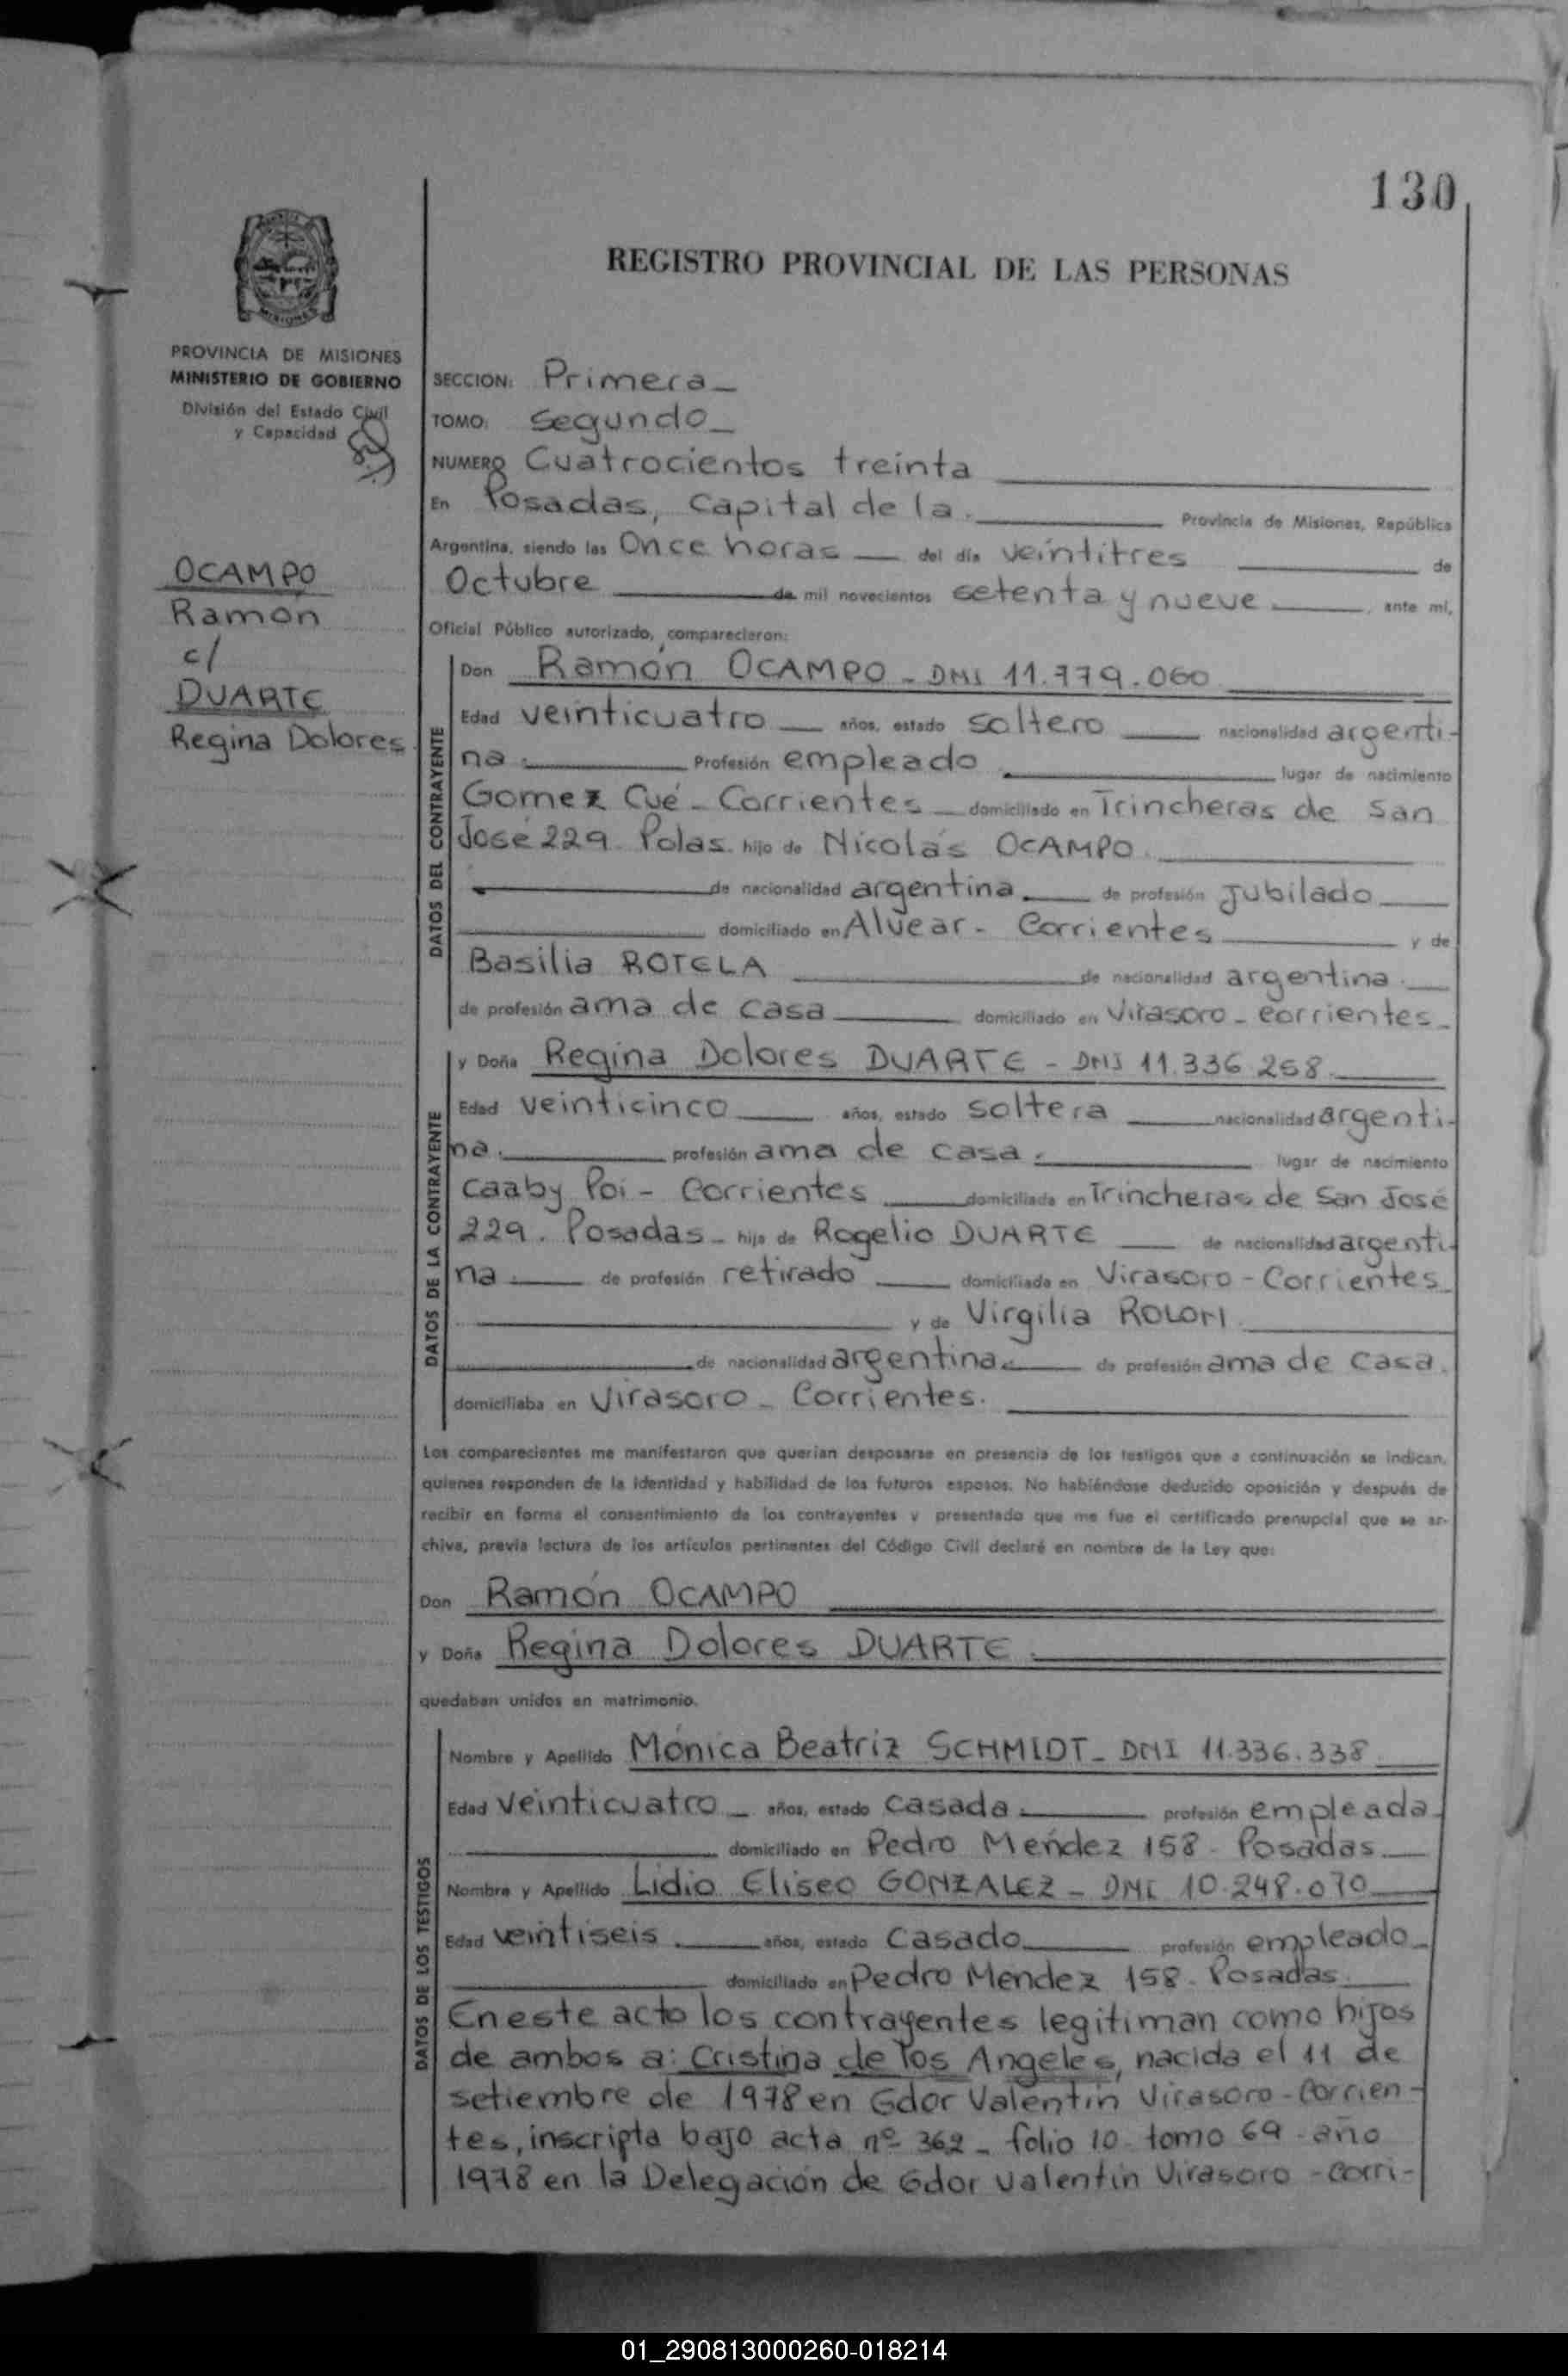 130
REGISTRO PROVINCIAL DE LAS PERSONAS
MISIONES
PROVINCIA DE MISIONES
MINISTERIO DE GOBIERNO
División del Estado Civil
y Capacidad
OCAMPO
Ramón
c/
DUARTE
Regina Dolores
SECCION: Primera
TOMO: Segundo
NUMERO Cuatrocientos treinta
En Posadas, Capital de la Provincia de Misiones, República
Argentina, siendo las Once horas del día veintitres de
Octubre de mil novecientos setenta y nueve, ante mí,
Oficial Público autorizado, comparecieron:
DATOS DEL CONTRAYENTE
Don Ramón OCAMPO - DNI 11.779.060
Edad veinticuatro años, estado soltero nacionalidad argenti-
na. Profesión empleado lugar de nacimiento
Gomez Cué - Corrientes domiciliado en Trincheras de San
José 229. Pdas. hijo de Nicolás OCAMPO.
de nacionalidad argentina. de profesión Jubilado
domiciliado en Alvear - Corrientes y de
Basilia ROTELA de nacionalidad argentina.
de profesión ama de casa domiciliado en Virasoro - Corrientes
DATOS DE LA CONTRAYENTE
y Doña Regina Dolores DUARTE - DNI 11.336.258
Edad veinticinco años, estado soltera nacionalidad argenti-
na. profesión ama de casa. lugar de nacimiento
Caaby Poi - Corrientes domiciliada en Trincheras de San José
229. Posadas - hija de Rogelio DUARTE de nacionalidad argenti-
na. de profesión retirado domiciliado en Virasoro - Corrientes
y de Virgilia ROLON.
de nacionalidad argentina. de profesión ama de casa.
domiciliaba en Virasoro - Corrientes.
Los comparecientes me manifestaron que querían desposarse en presencia de los testigos que a continuación se indican,
quienes responden de la identidad y habilidad de los futuros esposos. No habiéndose deducido oposición y después de
recibir en forma el consentimiento de los contrayentes y presentado que me fue el certificado prenupcial que se ar-
chiva, previa lectura de los artículos pertinentes del Código Civil declaré en nombre de la Ley que:
Don Ramón OCAMPO
y Doña Regina Dolores DUARTE.
quedaban unidos en matrimonio.
DATOS DE LOS TESTIGOS
Nombre y Apellido Mónica Beatriz SCHMIDT - DNI 11.336.338
Edad veinticuatro años, estado casada. profesión empleada
domiciliado en Pedro Mendez 158 - Posadas.
Nombre y Apellido Lidio Eliseo GONZALEZ - DNI 10.248.070
Edad veintiseis años, estado casado profesión empleado
domiciliado en Pedro Mendez 158 - Posadas.
En este acto los contrayentes legitiman como hijos
de ambos a: Cristina de los Angeles, nacida el 11 de
setiembre de 1978 en Gdor Valentin Virasoro - Corrien-
tes, inscripta bajo acta nº 362 - folio 10 - tomo 69 - año
1978 en la Delegación de Gdor Valentin Virasoro - Corri-
01_290813000260-018214